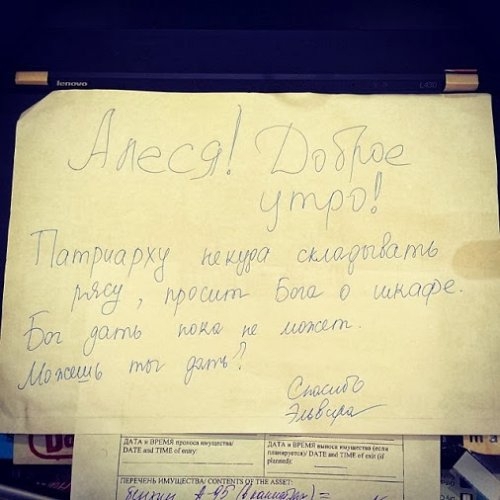 lenovo
L430
Алеся! Доброе
утро!
Патриарху некуда складывать
рясу, просит Бога о шкафе.
Бог дать пока не может.
Можешь ты дать?
Спасибо
Эльвира
ДАТА и ВРЕМЯ проноса имущества/
DATE and TIME of entry:
ДАТА и ВРЕМЯ выноса имущества (если
планируется)/ DATE and TIME of exit (if
planned):
ПЕРЕЧЕНЬ ИМУЩЕСТВА/ CONTENTS OF THE ASSET: